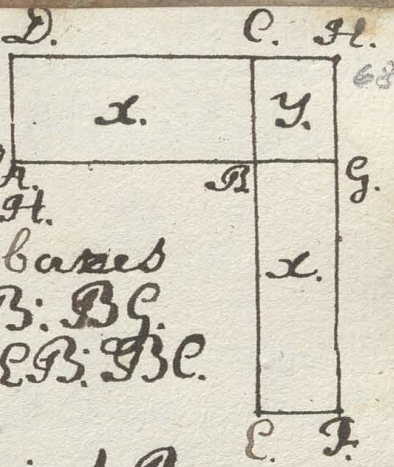 D. C. H.
68
X. Y.
A. B G.
H.
bases
X.
B: BG.
EB: BC.
E. F.